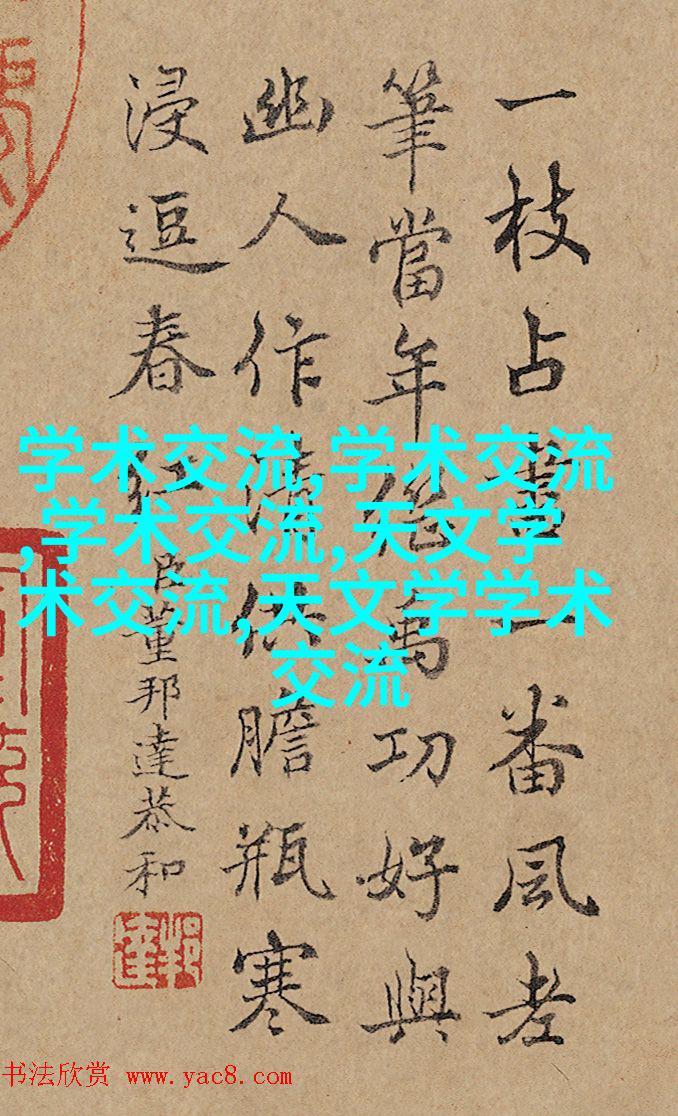 一枝占盡一番風老
筆當年萬功好與
幽人作清供膽瓶寒
浸逗春紅
臣董邦達恭和
邦達
学术交流,学术交流
,学术交流,天文学
术交流,天文学学术
交流
书法欣赏 www.yac8.com